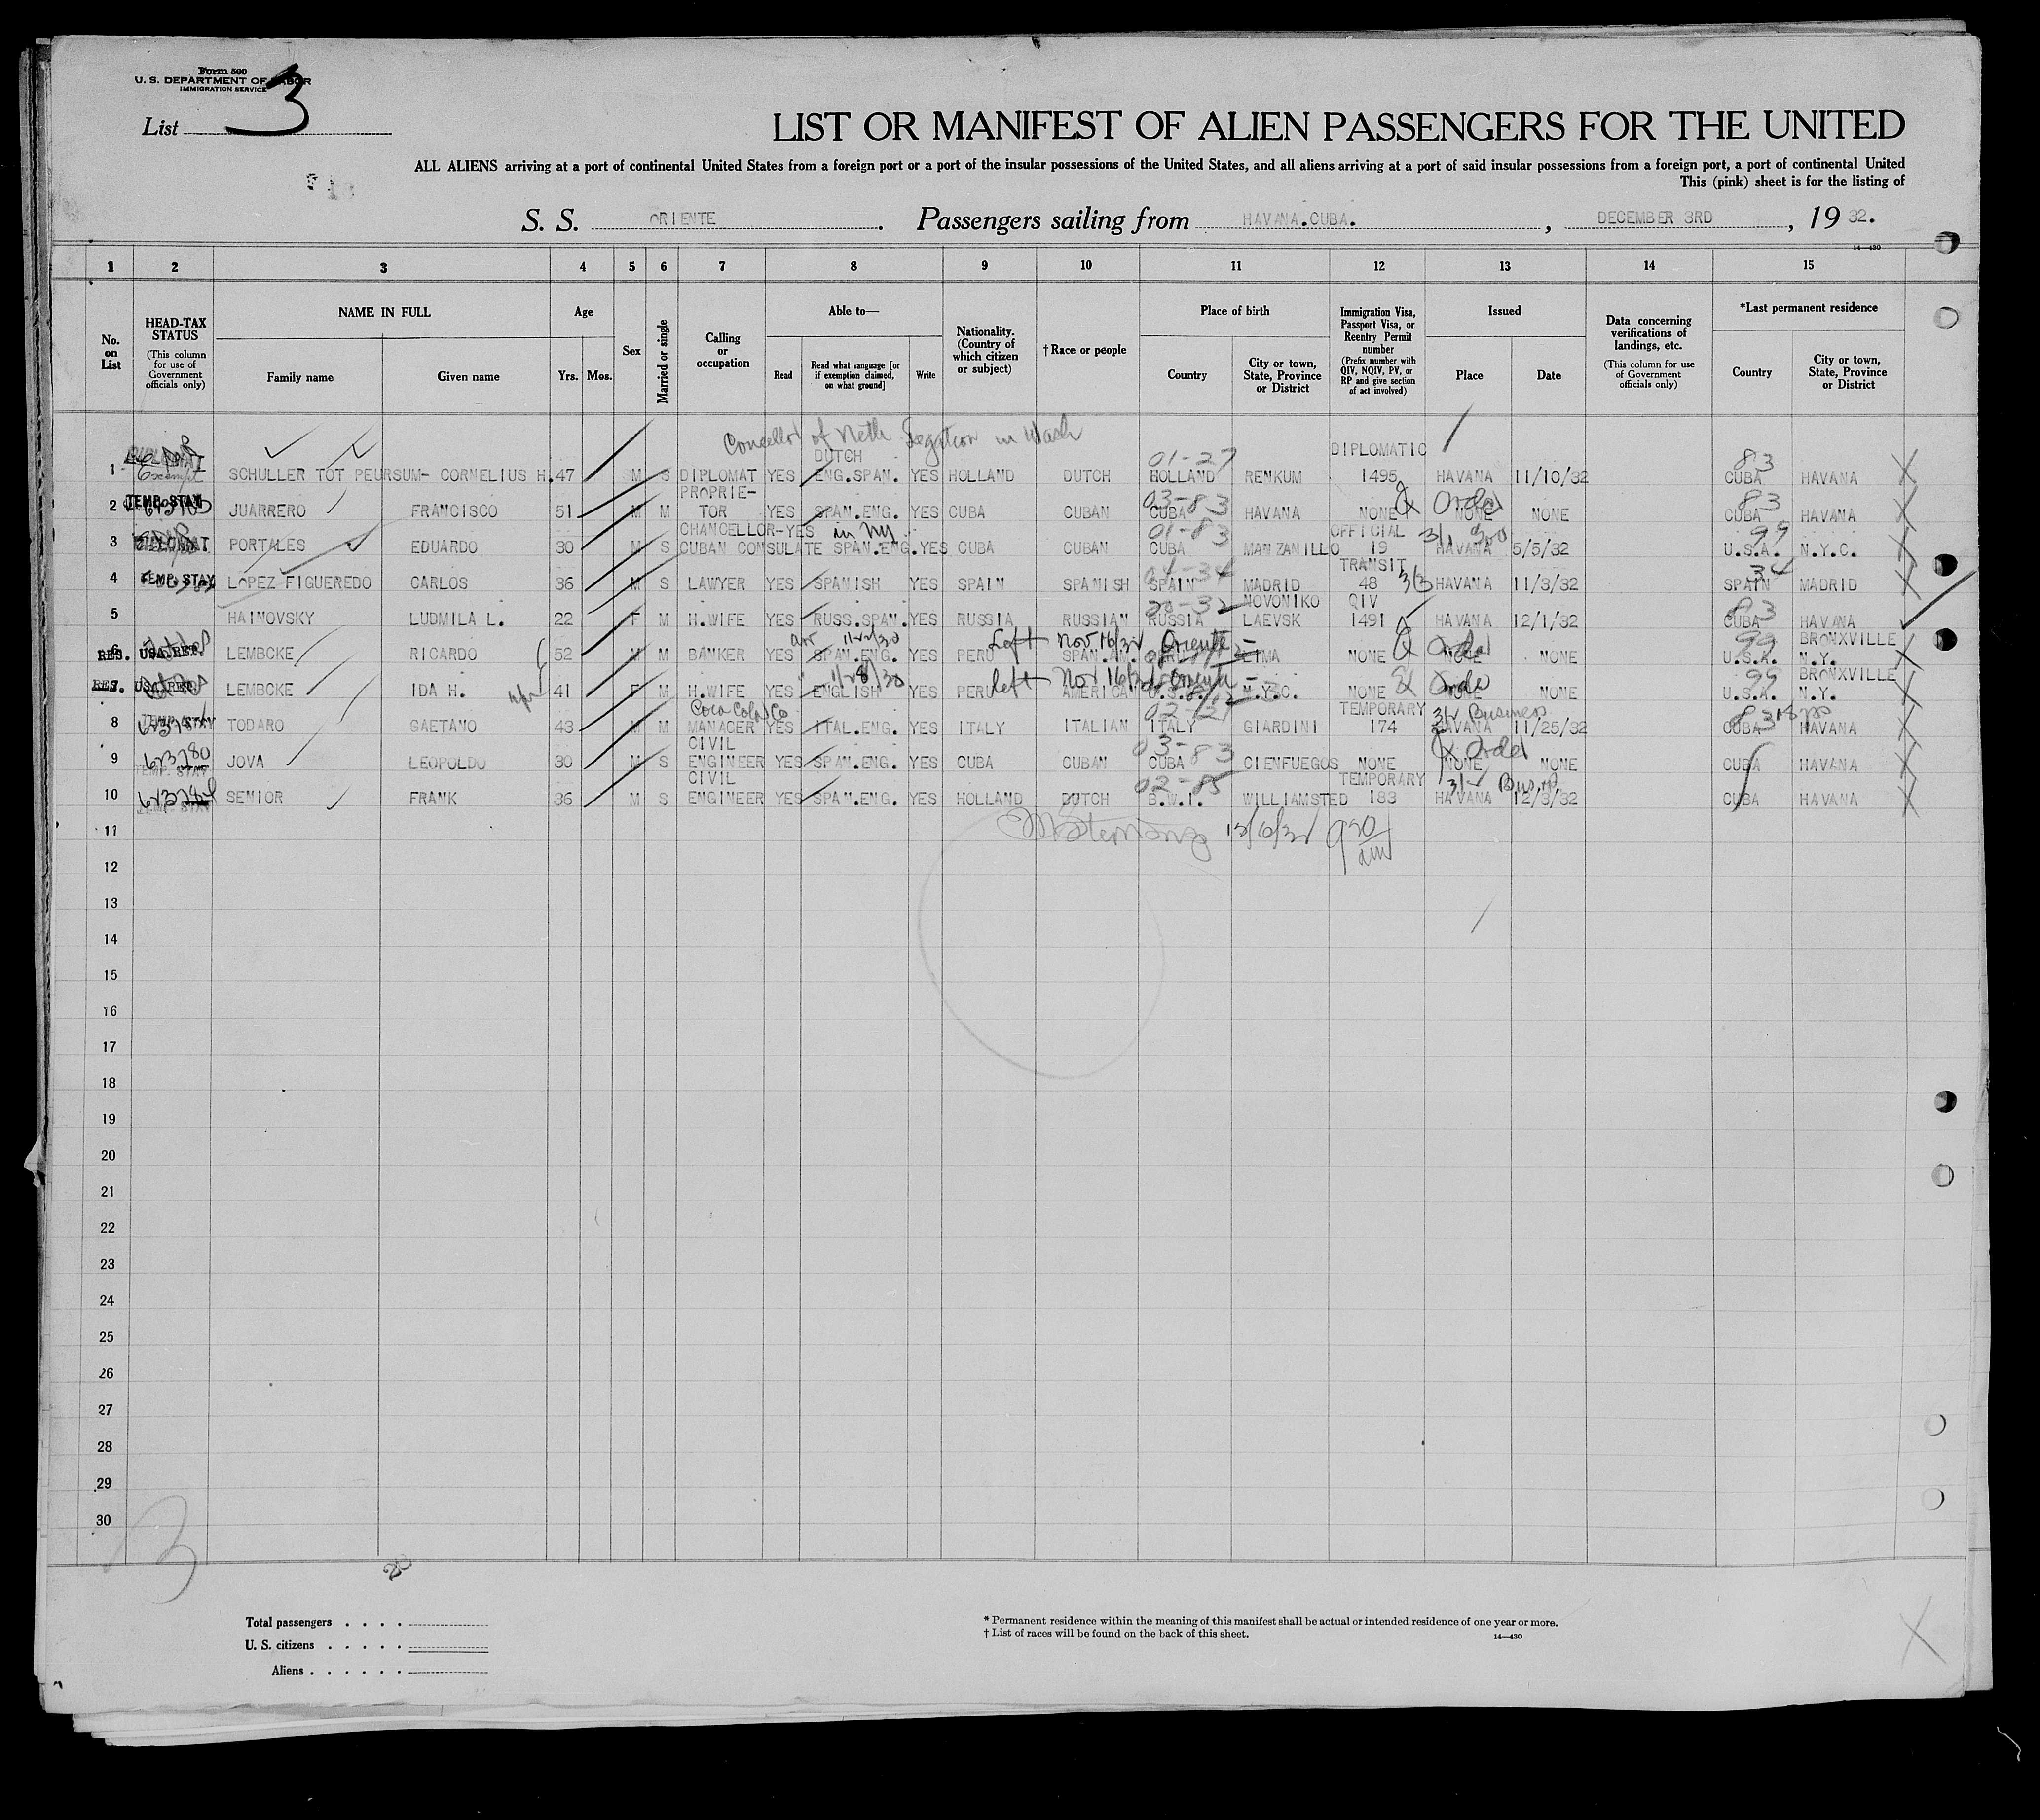 Form 500
U. S. DEPARTMENT OF LABOR
IMMIGRATION SERVICE
List 3
LIST OR MANIFEST OF ALIEN PASSENGERS FOR THE UNITED
ALL ALIENS arriving at a port of continental United States from a foreign port or a port of the insular possessions of the United States, and all aliens arriving at a port of said insular possessions from a foreign port, a port of continental United
This (pink) sheet is for the listing of
S. S. ORIENTE. Passengers sailing from HAVANA.CUBA. , DECEMBER 3RD , 19 32.
14—430
1 2 3 4 5 6 7 8 9 10 11 12 13 14 15
No. on List
HEAD-TAX STATUS (This column for use of Government officials only)
NAME IN FULL
Family name Given name
Age
Yrs. Mos.
Sex
Married or single
Calling or occupation
Able to—
Read Read what language [or if exemption claimed, on what ground] Write
Nationality. (Country of which citizen or subject)
† Race or people
Place of birth
Country City or town, State, Province or District
Immigration Visa, Passport Visa, or Reentry Permit number (Prefix number with QIV, NQIV, PV, or RP and give section of act involved)
Issued
Place Date
Data concerning verifications of landings, etc. (This column for use of Government officials only)
*Last permanent residence
Country City or town, State, Province or District
of Neth Legation in Wash
DUTCH DIPLOMATIC
01-27 83
1 Exempt SCHULLER TOT PEURSUM- CORNELIUS H. 47 M S DIPLOMAT YES ENG.SPAN. YES HOLLAND DUTCH HOLLAND RENKUM 1495 HAVANA 11/10/32 CUBA HAVANA
TEMP. STAY PROPRIE- 03-83 83
2 JUARRERO FRANCISCO 51 M M TOR YES SPAN.ENG. YES CUBA CUBAN CUBA HAVANA NONE NONE NONE CUBA HAVANA
CHANCELLOR-YES in NY 01-83 OFFICIAL 99
3 DIPLOMAT PORTALES EDUARDO 30 M S CUBAN CONSULATE SPAN.ENG. YES CUBA CUBAN CUBA MANZANILLO 19 HAVANA 5/5/32 U.S.A. N.Y.C.
04-34 TRANSIT 34
4 TEMP. STAY LOPEZ FIGUEREDO CARLOS 36 M S LAWYER YES SPANISH YES SPAIN SPANISH SPAIN MADRID 48 HAVANA 11/3/32 SPAIN MADRID
NOVONIKO QIV 83
5 HAINOVSKY LUDMILA L. 22 F M H.WIFE YES RUSS.SPAN. YES RUSSIA RUSSIAN RUSSIA LAEVSK 1491 HAVANA 12/1/32 CUBA HAVANA
Left Nov 16/32 Oriente 99 BRONXVILLE
6 RES. USA RET. LEMBCKE RICARDO 52 M M BANKER YES SPAN.ENG. YES PERU SPAN.AM. LIMA NONE NONE NONE U.S.A. N.Y.
11/28/30 left Nov 16/32 Oriente 99 BRONXVILLE
7 RES. USA RET. LEMBCKE IDA H. 41 F M H.WIFE YES ENGLISH YES PERU AMERICA U.S.A. N.Y.C. NONE NONE NONE U.S.A. N.Y.
Coca Cola Co 02-21 TEMPORARY Business 83
8 TEMP. STAY TODARO GAETANO 43 M M MANAGER YES ITAL.ENG. YES ITALY ITALIAN ITALY GIARDINI 174 HAVANA 11/25/32 CUBA HAVANA
CIVIL 03-83
9 TEMP. STAY JOVA LEOPOLDO 30 M S ENGINEER YES SPAN.ENG. YES CUBA CUBAN CUBA CIENFUEGOS NONE NONE NONE CUBA HAVANA
CIVIL 02-85 TEMPORARY
10 TEMP. STAY SENIOR FRANK 36 M S ENGINEER YES SPAN.ENG. YES HOLLAND DUTCH B.W.I. WILLIAMSTED 183 HAVANA 12/3/32 CUBA HAVANA
11 12/6/32 930 am
12
13
14
15
16
17
18
19
20
21
22
23
24
25
26
27
28
29
30
3
20
Total passengers . . . .
U. S. citizens . . . . .
Aliens . . . . . .
* Permanent residence within the meaning of this manifest shall be actual or intended residence of one year or more.
† List of races will be found on the back of this sheet. 14—430